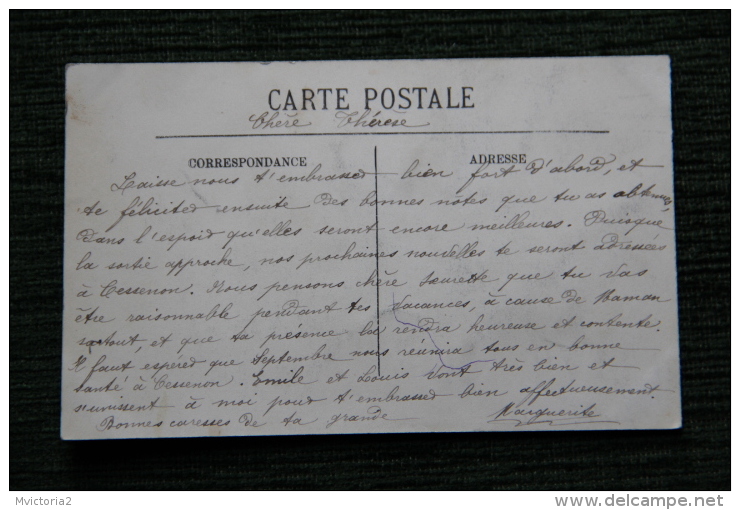 CARTE POSTALE
Chère Thérèse
CORRESPONDANCE
ADRESSE
Laisse nous t'embrasser bien fort d'abord, et
te féliciter ensuite des bonnes notes que tu as obtenues,
Dans l'espoir qu'elles seront encore meilleures. Puisque
la sortie approche, nos prochaines nouvelles te seront adressées
à Cessenon. Nous pensons chère Soeurette que tu vas
être raisonnable pendant tes vacances, à cause de Maman
surtout, et que ta présence la rendra heureuse et contente.
Il faut espérer que Septembre nous réunira tous en bonne
santé à Cessenon. Emile et Louis vont très bien et
s'unissent à moi pour t'embrasser bien affectueusement.
Bonnes caresses de ta grande Marguerite
Mvictoria2
http://mvictoria2.delcampe.net